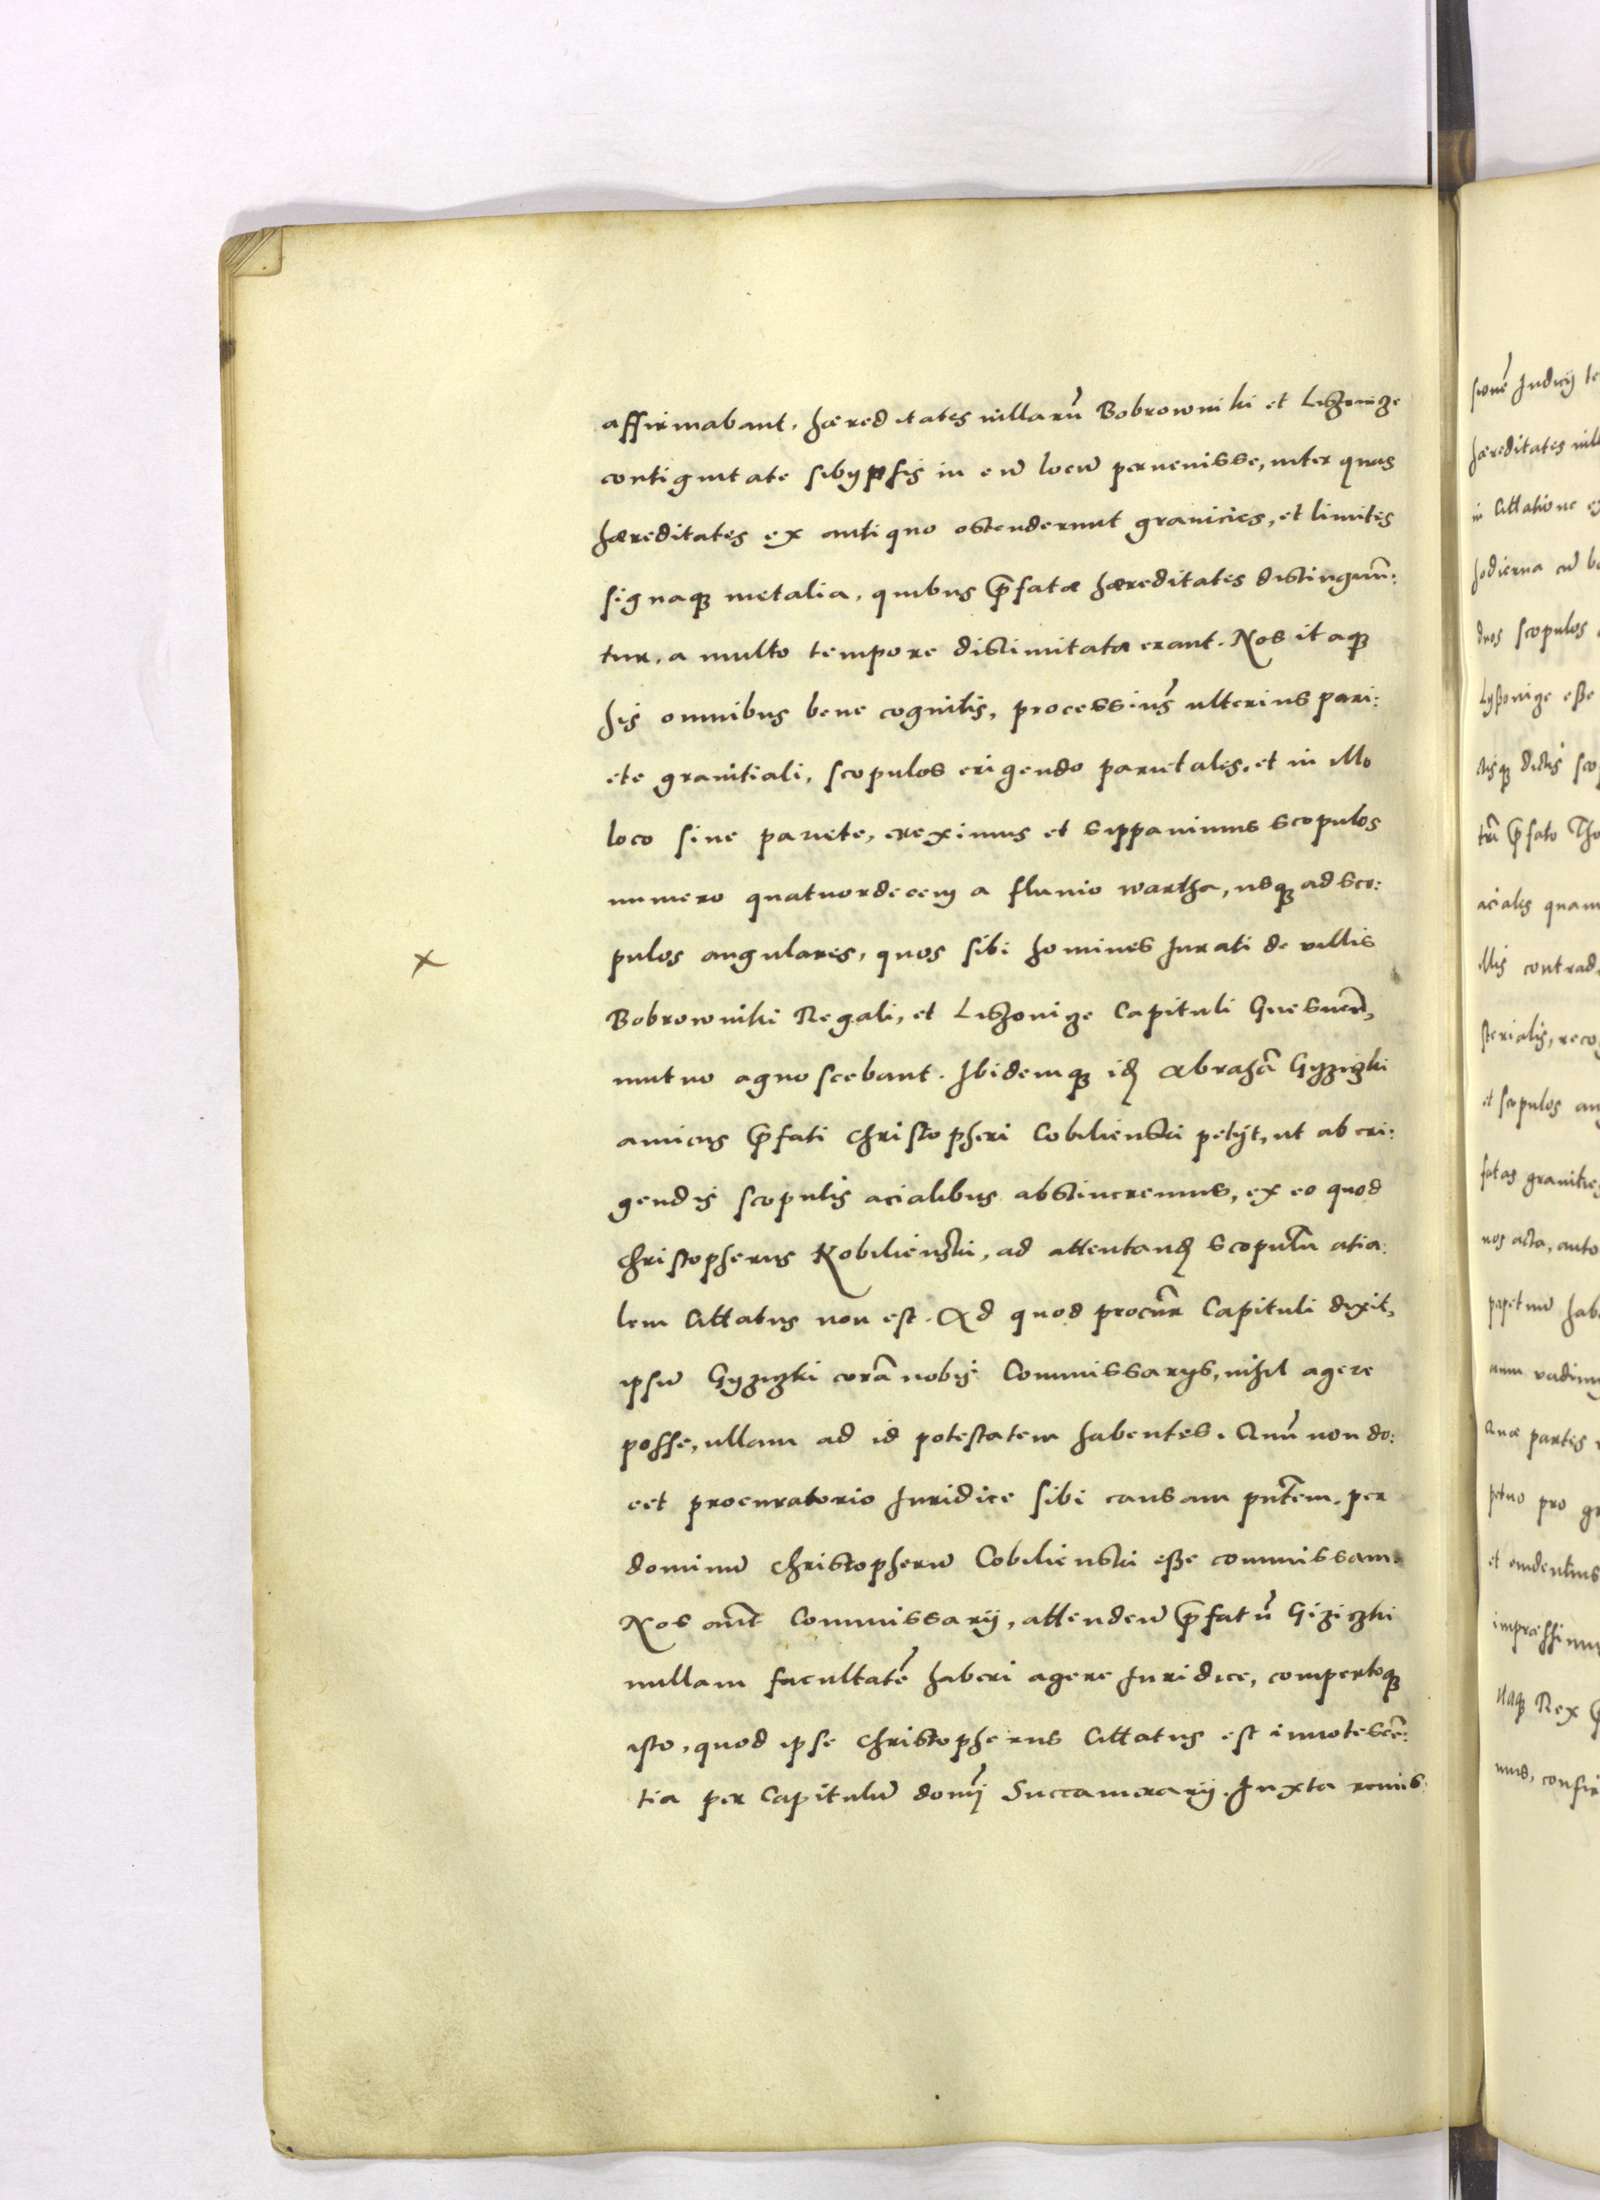 affirmabant, hæreditates villarũ Bobrowniki et Liszonize
contiguitate sibypsis in eũ locũ pervenisse, inter quas
hæreditates ex antiquo ostenderunt granicies, et limites
signaqꝫ metalia, quibus p̃fatæ hæreditates distinguun:
tur, a multo tempore distimitata erant. Nos itaqꝫ
his omnibus bene cognitis, processim9 ulterius pari:
ete granitiali, scopulos erigendo parietales, et in illo
loco sine pariete, ereximus et sippavimus scopulos
numero quatuordecem a fluvio wartha, usqꝫ ad sco:
pulos angulares, quos sibi homines Jurati de villis
Bobrowniki Regali, et Liszonize Capituli Gnesneñ,
mutuo agnoscebant. Ibidemqꝫ idꝫ Abrahã Gyzizki
amicus p̃fati Christopheri Cobilienski petijt, ut ab eri:
gendis scopulis acialibus abstineremus, ex eo quod
Christopherus Kobilienski, ad attentandꝫ scopulũ atia:
lem Cittatus non est. Ad quod procũr Capituli dixit,
ipsũ Gyzizki corã nobis Commissarys, nihil agere
posse, ullam ad id potestatem habentes. Quũ non do:
cet procuratorio Juridice sibi causam pñtem, per
dominũ Christopherũ Cobilienski esse commissam.
Nos aũt Commissarij, attendeñ p̃fatũ Gizizki
nullam facultatẽ haberi agere Juridice, compertoqꝫ
isto, quod ipse Christopherus Cittatus est innotescẽ:
tia per Capitulũ domj̃ Succamerarij. Juxta remis:
sionẽ Judicij
hæreditates
in Cittatione
hodierna cũ
duos scopulos
esse
dictis
p̃fato
acialis quam
illis
et scopulos
fatas
nos acta,
partes
pro
et evidentius
Rex
mus,
x